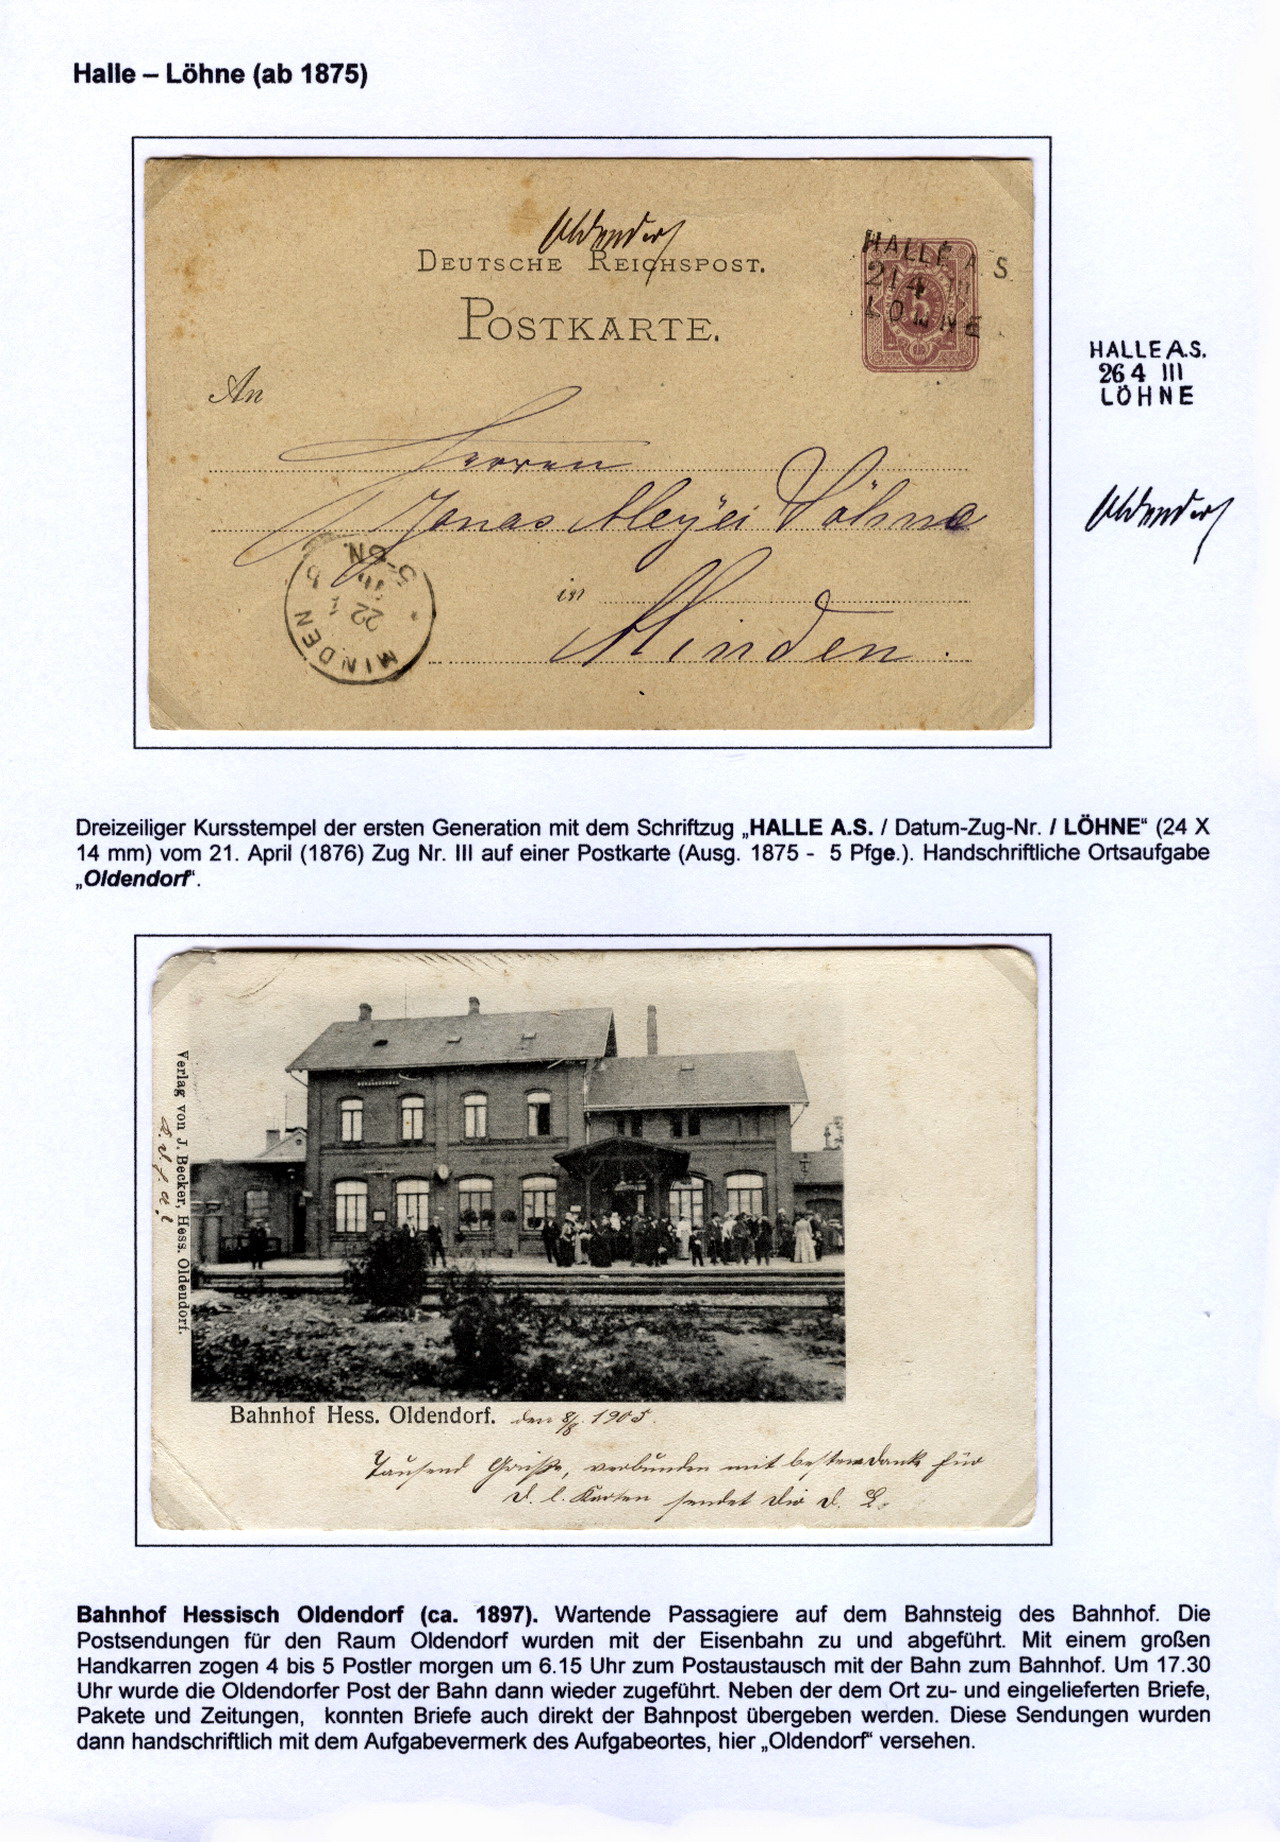 Halle – Löhne (ab 1875)
Oldendorf
DEUTSCHE REICHSPOST.
POSTKARTE.
HALLE A S.
21 4 III
LÖHNE
HALLE A.S.
26 4 III
LÖHNE
An
Herren
Jonas Meyer Söhne
Oldendorf
in Minden.
MINDEN
22
5-6N.
Dreizeiliger Kursstempel der ersten Generation mit dem Schriftzug „HALLE A.S. / Datum-Zug-Nr. / LÖHNE“ (24 X
14 mm) vom 21. April (1876) Zug Nr. III auf einer Postkarte (Ausg. 1875 - 5 Pfge.). Handschriftliche Ortsaufgabe
„Oldendorf“.
Verlag von J. Becker, Hess. Oldendorf.
Bahnhof Hess. Oldendorf. den 8/8. 1905.
Tausend Grüße, verbunden mit bestem dank für
d. l. Karten sendet dir d. L.
Bahnhof Hessisch Oldendorf (ca. 1897). Wartende Passagiere auf dem Bahnsteig des Bahnhof. Die
Postsendungen für den Raum Oldendorf wurden mit der Eisenbahn zu und abgeführt. Mit einem großen
Handkarren zogen 4 bis 5 Postler morgen um 6.15 Uhr zum Postaustausch mit der Bahn zum Bahnhof. Um 17.30
Uhr wurde die Oldendorfer Post der Bahn dann wieder zugeführt. Neben der dem Ort zu- und eingelieferten Briefe,
Pakete und Zeitungen, konnten Briefe auch direkt der Bahnpost übergeben werden. Diese Sendungen wurden
dann handschriftlich mit dem Aufgabevermerk des Aufgabeortes, hier „Oldendorf“ versehen.